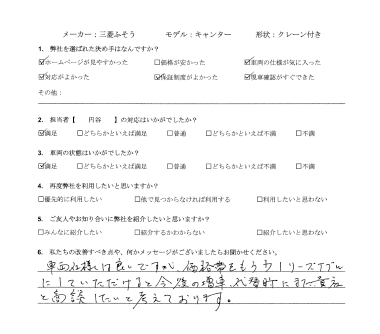 メーカー：三菱ふそう　モデル：キャンター　形状：クレーン付き
1. 弊社を選ばれた決め手はなんですか？
☑ホームページが見やすかった　□価格が安かった　☑車両の仕様が気に入った
☑対応がよかった　☑保証制度がよかった　☑現車確認がすぐできた
その他：
2. 担当者【　円谷　】の対応はいかがでしたか？
☑満足　□どちらかといえば満足　□普通　□どちらかといえば不満　□不満
3. 車両の状態はいかがでしたか？
☑満足　□どちらかといえば満足　□普通　□どちらかといえば不満　□不満
4. 再度弊社を利用したいと思いますか？
□優先的に利用したい　□他で見つからなければ利用する　□利用したいと思わない
5. ご友人やお知り合いに弊社を紹介したいと思いますか？
□みんなに紹介したい　□紹介するかわからない　□紹介したいと思わない
6. 私たちの改善すべき点や、何かメッセージがございましたらお聞かせください。
車両仕様は良いですが、価格帯をもう少しリーズナブル
にしていただけると今後の増車、代替時にまた貴社
と商談したいと考えております。